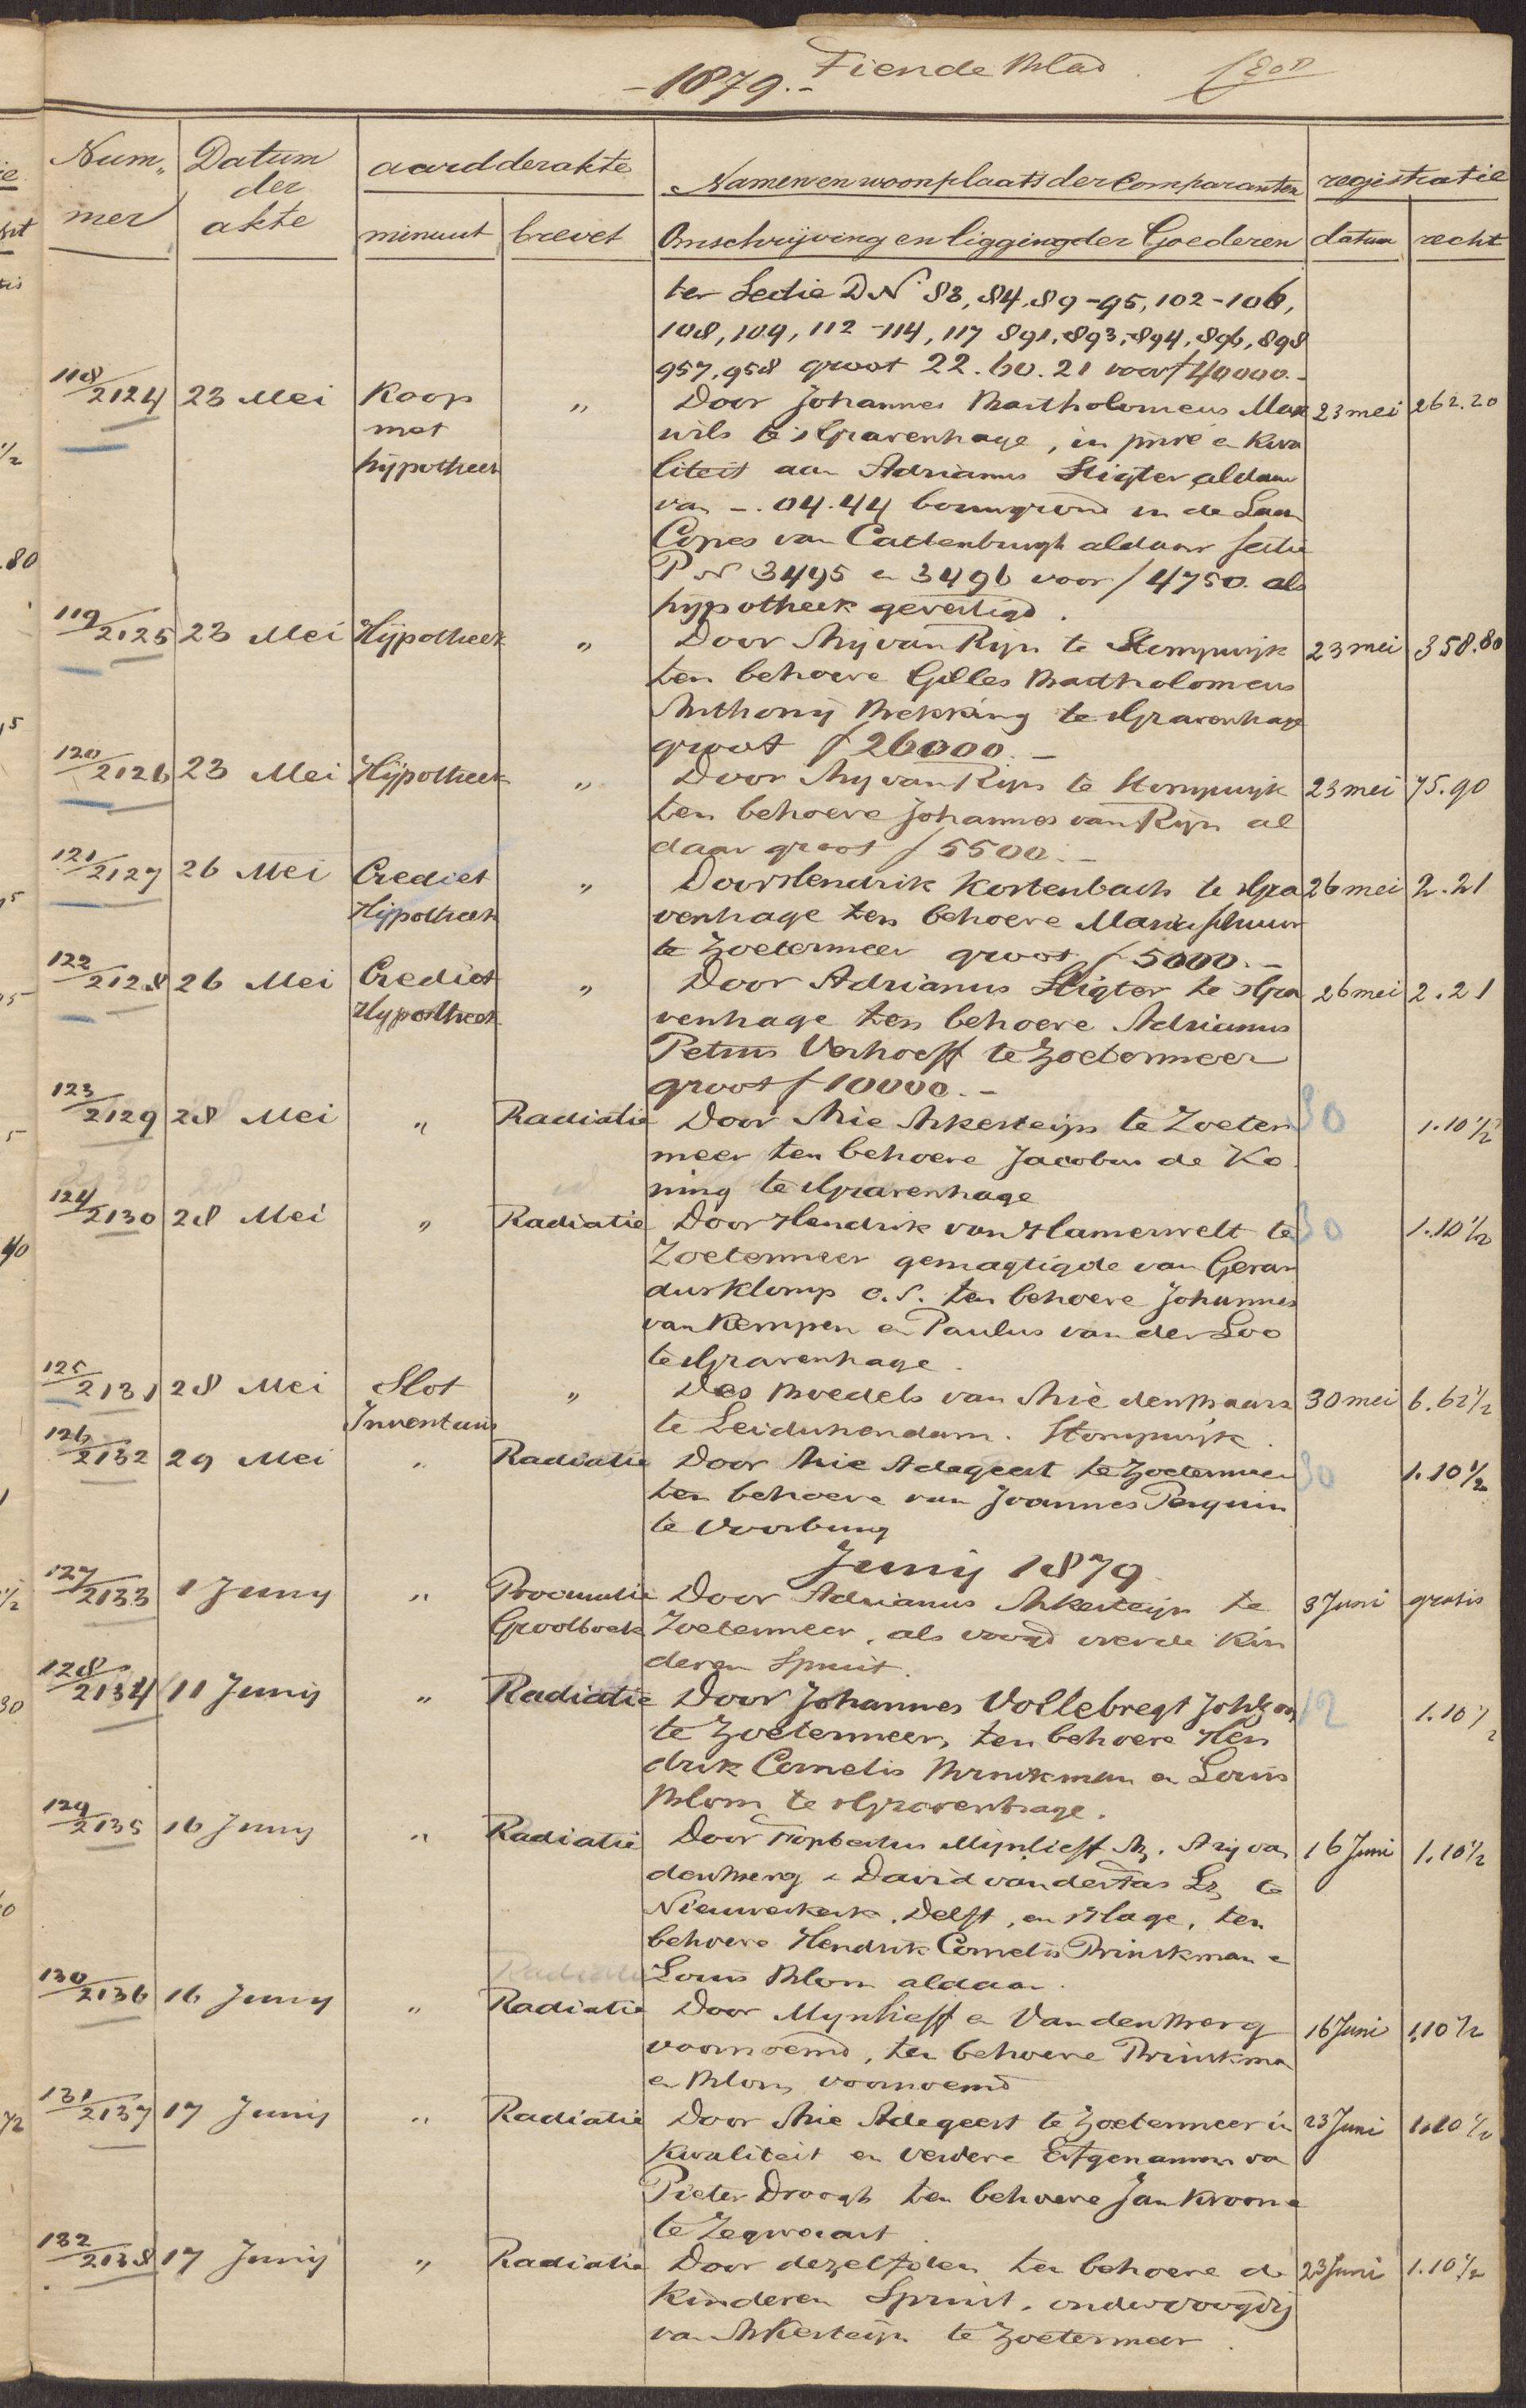 1879.- Tiende Blad
Num- Datum aard der akte Namen en woonplaats der Comparanten registratie
mer der akte minuut brevet Omschrijving en ligging der Goederen datum recht
ter Sectie D No 83, 84, 89-95, 102-106,
108, 109, 112-114, 117 891, 893, 894, 896, 898
957, 958 groot 22.60.21 voor f 40000.-
118/2124 23 Mei Koop „ Door Johannes Bartholomeus Mak 23 mei 262.20
met wils te 's Gravenhage, in privé en kwa
hypotheek liteit aan Adrianus Stigter aldaar
van -.04.44 bouwgrond in de Laan
Copes van Cattenburgh aldaar sectie
P N 3495 en 3496 voor f 4750. als
hypotheek gevestigd.
119/2125 23 Mei Hypotheek „ Door Arij van Rijn te Stompwijk 23 mei 358.80
ten behoeve Gilles Bartholomeus
Anthonij Bekking te 's Gravenhage
groot f 26000.-
120/2126 23 Mei Hypotheek „ Door Arij van Rijn te Stompwijk 23 mei 75.90
ten behoeve Johannes van Rijn al
daar groot f 5500.-
121/2127 26 Mei Crediet „ Door Hendrik Kortenbach te 's Gra 26 mei 2.21
Hypotheek venhage ten behoeve Maria Schuur
te Zoetermeer groot f 5000.-
122/2128 26 Mei Crediet „ Door Adrianus Stigter te 's Gra 26 mei 2.21
Hypotheek venhage ten behoeve Adrianus
Petrus Verhoeff te Zoetermeer
groot f 10000.-
123/2129 28 Mei „ Radiatie Door Arie Ankersteijn te Zoeter 30 1.10 1/2
meer ten behoeve Jacobus de Ko
ning te 's Gravenhage
124/2130 28 Mei „ Radiatie Door Hendrik van Hamerwelt te 30 1.10 1/2
Zoetermeer gemagtigde van Gerar
dus Klomp c.s. ten behoeve Johannes
van Kempen en Paulus van der Loo
te 's Gravenhage.
125/2131 28 Mei Slot „ Des Boedels van Arie den Baars 30 mei 6.62 1/2
Inventaris te Leidschendam. Stompwijk.
126/2132 29 Mei „ Radiatie Door Arie Adegeest te Zoetermeer 30 1.10 1/2
ten behoeve van Joannes Perquin
te Voorburg
Junij 1879
127/2133 1 Junij „ Procuratie Door Adrianus Ankersteijn te 3 Juni gratis
Grootboek Zoetermeer, als voogd over de kin
deren Spruit.
128/2134 11 Junij „ Radiatie Door Johannes Vollebregt Johzoon 12 1.10 1/2
te Zoetermeer, ten behoeve Hen
drik Cornelis Brinkman en Louis
Blom te 's Gravenhage.
129/2135 16 Junij „ Radiatie Door Fopbertus Mijnlieff Az. Arij van 16 Juni 1.10 1/2
den Berg en David van der Tas Lz te
Nieuwerkerk, Delft, en 's Hage, ten
behoeve Hendrik Cornelis Brinkman en
Louis Blom aldaar.
130/2136 16 Junij „ Radiatie Door Mijnlieff en Van den Berg 16 Juni 1,10 1/2
voornoemd, ten behoeve Brinkma
en Blom voornoemd
131/2137 17 Junij „ Radiatie Door Arie Adegeest te Zoetermeer in 23 Juni 1.10 1/2
kwaliteit en verdere Erfgenamen va
Pieter Droogh ten behoeve Jan Kroone
te Zegwaart.
132/2138 17 Junij „ Radiatie Door dezelfden ten behoeve de 23 Juni 1.10 1/2
kinderen Spruit, onder voogdij
van Ankersteijn te Zoetermeer.